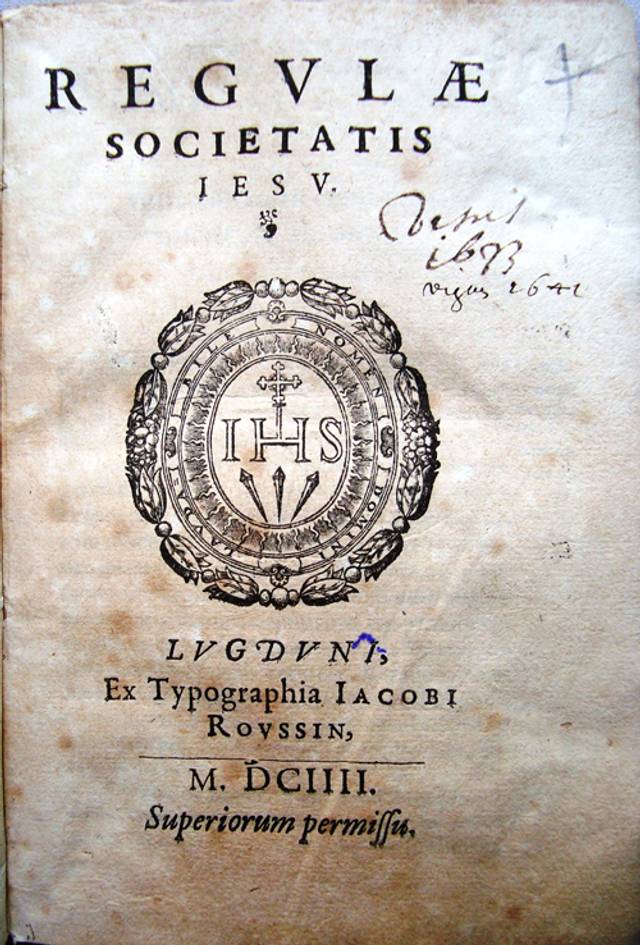 REGVLÆ
SOCIETATIS
IESV.
NOMEN
DOMINI
LAVDA
IHS
LVGDVNI,
Ex Typographia IACOBI
ROVSSIN,
M. DCIIII.
Superiorum permissu.